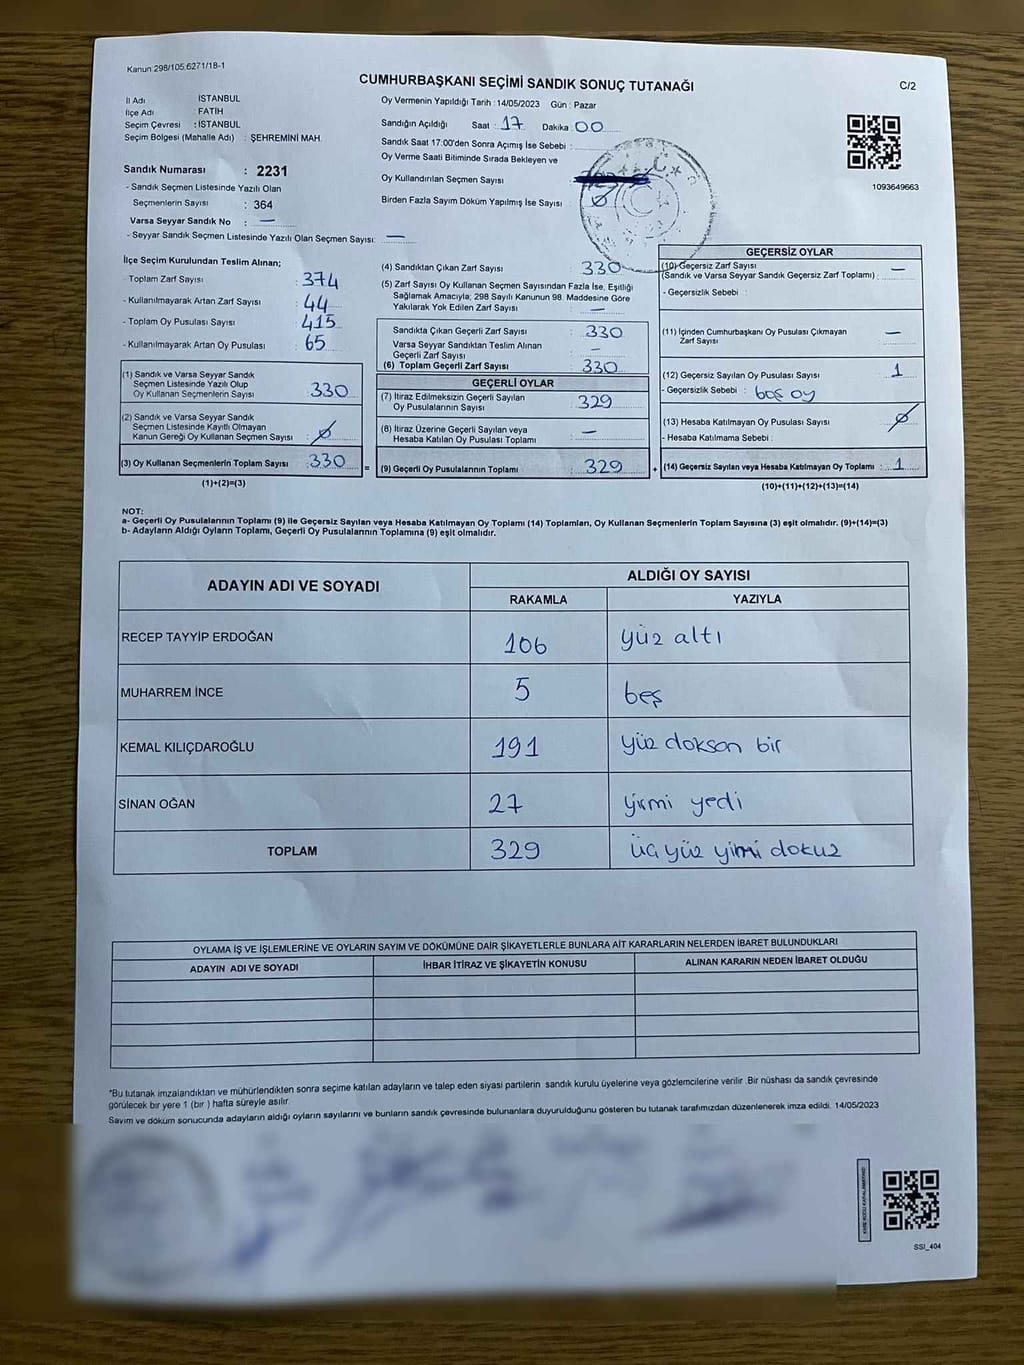 Kanun:298/105,6271/18-1
CUMHURBAŞKANI SEÇİMİ SANDIK SONUÇ TUTANAĞI
C/2
İl Adı İSTANBUL
İlçe Adı : FATİH
Seçim Çevresi : İSTANBUL
Seçim Bölgesi (Mahalle Adı) : ŞEHREMİNİ MAH.
Sandık Numarası : 2231
- Sandık Seçmen Listesinde Yazılı Olan
Seçmenlerin Sayısı : 364
Varsa Seyyar Sandık No : —
- Seyyar Sandık Seçmen Listesinde Yazılı Olan Seçmen Sayısı: —
Oy Vermenin Yapıldığı Tarih :14/05/2023 Gün : Pazar
Sandığın Açıldığı Saat : 17 Dakika : 00
Sandık Saat 17:00'den Sonra Açımış İse Sebebi :
Oy Verme Saati Bitiminde Sırada Bekleyen ve
Oy Kullandırılan Seçmen Sayısı
Birden Fazla Sayım Döküm Yapılmış İse Sayısı : Ø
1093649663
İlçe Seçim Kurulundan Teslim Alınan;
- Toplam Zarf Sayısı : 374
- Kullanılmayarak Artan Zarf Sayısı : 44
- Toplam Oy Pusulası Sayısı : 415
- Kullanılmayarak Artan Oy Pusulası : 65
(1) Sandık ve Varsa Seyyar Sandık
Seçmen Listesinde Yazılı Olup
Oy Kullanan Seçmenlerin Sayısı : 330
(2) Sandık ve Varsa Seyyar Sandık
Seçmen Listesinde Kayıtlı Olmayan
Kanun Gereği Oy Kullanan Seçmen Sayısı : Ø
(3) Oy Kullanan Seçmenlerin Toplam Sayısı : 330
(1)+(2)=(3)
(4) Sandıktan Çıkan Zarf Sayısı : 330
(5) Zarf Sayısı Oy Kullanan Seçmen Sayısından Fazla İse, Eşitliği
Sağlamak Amacıyla; 298 Sayılı Kanunun 98. Maddesine Göre
Yakılarak Yok Edilen Zarf Sayısı : —
Sandıkta Çıkan Geçerli Zarf Sayısı : 330
Varsa Seyyar Sandıktan Teslim Alınan
Geçerli Zarf Sayısı : —
(6) Toplam Geçerli Zarf Sayısı : 330
GEÇERLİ OYLAR
(7) İtiraz Edilmeksizin Geçerli Sayılan
Oy Pusulalarının Sayısı : 329
(8) İtiraz Üzerine Geçerli Sayılan veya
Hesaba Katılan Oy Pusulası Toplamı : —
= (9) Geçerli Oy Pusulalarının Toplamı : 329
GEÇERSİZ OYLAR
(10) Geçersiz Zarf Sayısı
(Sandık ve Varsa Seyyar Sandık Geçersiz Zarf Toplamı) : —
- Geçersizlik Sebebi :
(11) İçinden Cumhurbaşkanı Oy Pusulası Çıkmayan
Zarf Sayısı : —
(12) Geçersiz Sayılan Oy Pusulası Sayısı : 1
- Geçersizlik Sebebi : boş oy
(13) Hesaba Katılmayan Oy Pusulası Sayısı : Ø
- Hesaba Katılmama Sebebi :
+ (14) Geçersiz Sayılan veya Hesaba Katılmayan Oy Toplamı : 1
(10)+(11)+(12)+(13)=(14)
NOT:
a- Geçerli Oy Pusulalarının Toplamı (9) ile Geçersiz Sayılan veya Hesaba Katılmayan Oy Toplamı (14) Toplamları, Oy Kullanan Seçmenlerin Toplam Sayısına (3) eşit olmalıdır. (9)+(14)=(3)
b- Adayların Aldığı Oyların Toplamı, Geçerli Oy Pusulalarının Toplamına (9) eşit olmalıdır.
ADAYIN ADI VE SOYADI ALDIĞI OY SAYISI
RAKAMLA YAZIYLA
RECEP TAYYİP ERDOĞAN 106 yüz altı
MUHARREM İNCE 5 beş
KEMAL KILIÇDAROĞLU 191 yüz doksan bir
SİNAN OĞAN 27 yirmi yedi
TOPLAM 329 üç yüz yirmi dokuz
OYLAMA İŞ VE İŞLEMLERİNE VE OYLARIN SAYIM VE DÖKÜMÜNE DAİR ŞİKAYETLERLE BUNLARA AİT KARARLARIN NELERDEN İBARET BULUNDUKLARI
ADAYIN ADI VE SOYADI İHBAR İTİRAZ VE ŞİKAYETİN KONUSU ALINAN KARARIN NEDEN İBARET OLDUĞU
*Bu tutanak imzalandıktan ve mühürlendikten sonra seçime katılan adayların ve talep eden siyasi partilerin sandık kurulu üyelerine veya gözlemcilerine verilir .Bir nüshası da sandık çevresinde
görülecek bir yere 1 (bir ) hafta süreyle asılır.
Sayım ve döküm sonucunda adayların aldığı oyların sayılarını ve bunların sandık çevresinde bulunanlara duyurulduğunu gösteren bu tutanak tarafımızdan düzenlenerek imza edildi. 14/05/2023
SSI_404